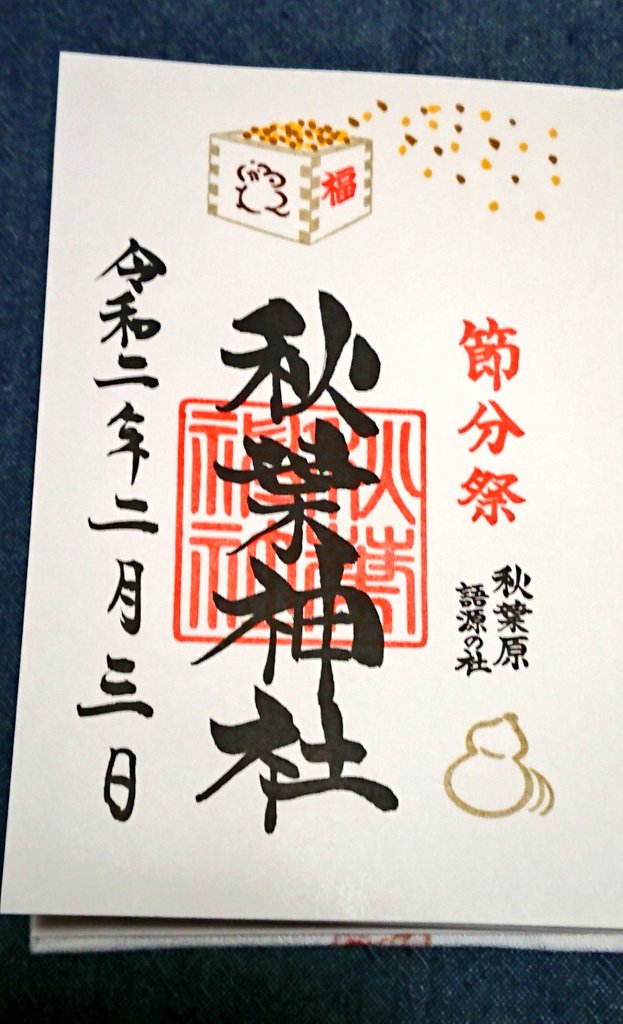 福
節分祭
秋葉原
語源の社
秋葉神社
秋葉神社
令和二年二月三日